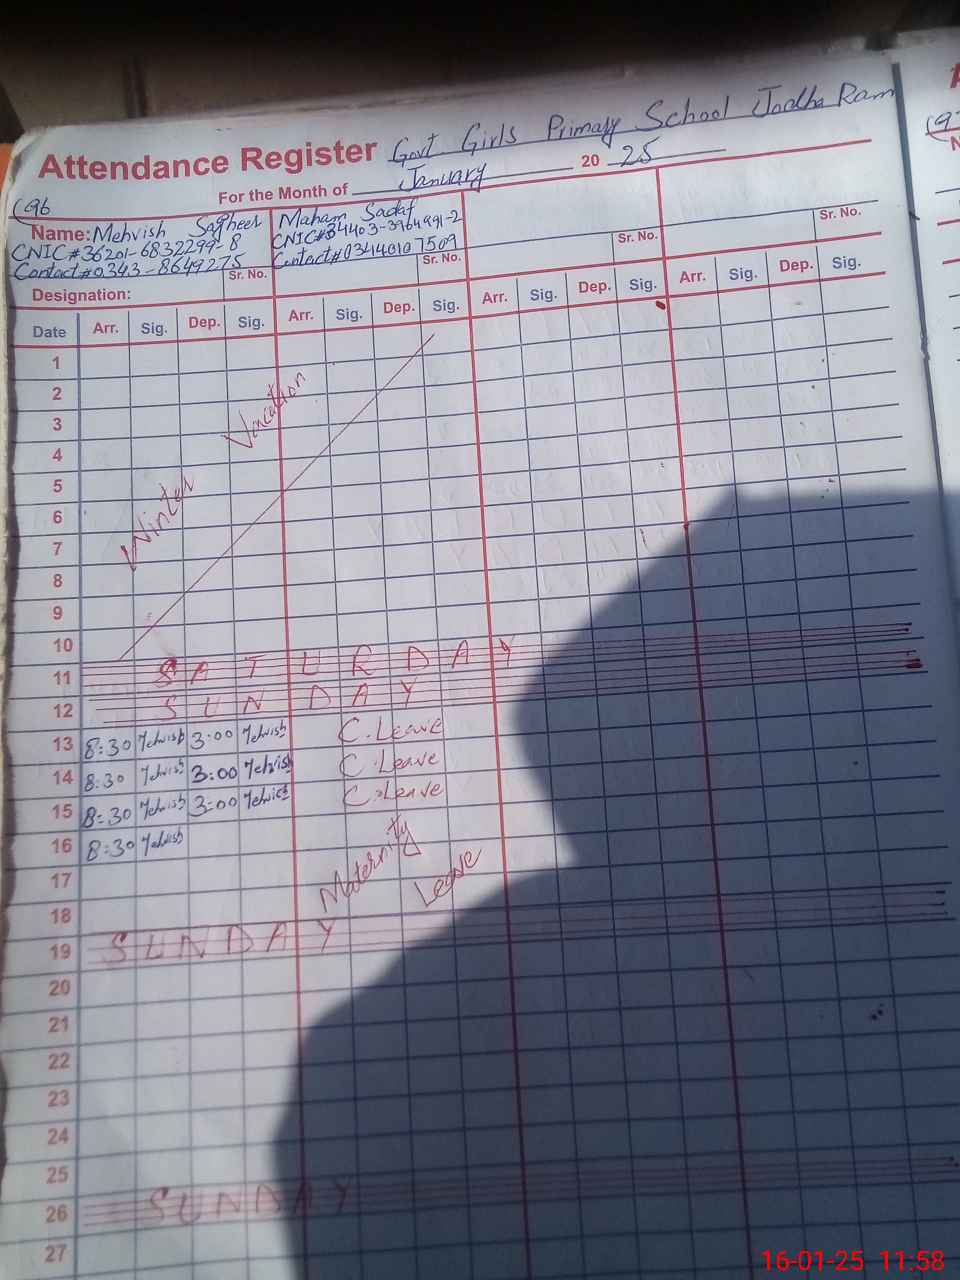 Attendance Register Govt Girls Primary School Jodha Ram
For the Month of January 20 25
(96
Name: Mehvish Sagheer
CNIC # 36201-6832299-8
Contact # 0343-8649275
Sr. No.
Maham Sadaf
CNIC# 34403-3964991-2
Contact# 03440107509
Sr. No.
Sr. No.
Sr. No.
Designation:
Date Arr. Sig. Dep. Sig. Arr. Sig. Dep. Sig. Arr. Sig. Dep. Sig. Arr. Sig. Dep. Sig.
1
2
3
4
5
6
7
8
9
10
Winter Vacation
11 SATURDAY
12 SUNDAY
13 8:30 Mehvish 3:00 Mehvish C. Leave
14 8:30 Mehvish 3:00 Mehvish C. Leave
15 8:30 Mehvish 3:00 Mehvish C. Leave
16 8:30 Mehvish
Maternity Leave
17
18
19 SUNDAY
20
21
22
23
24
25
26 SUNDAY
27
16-01-25 11:58